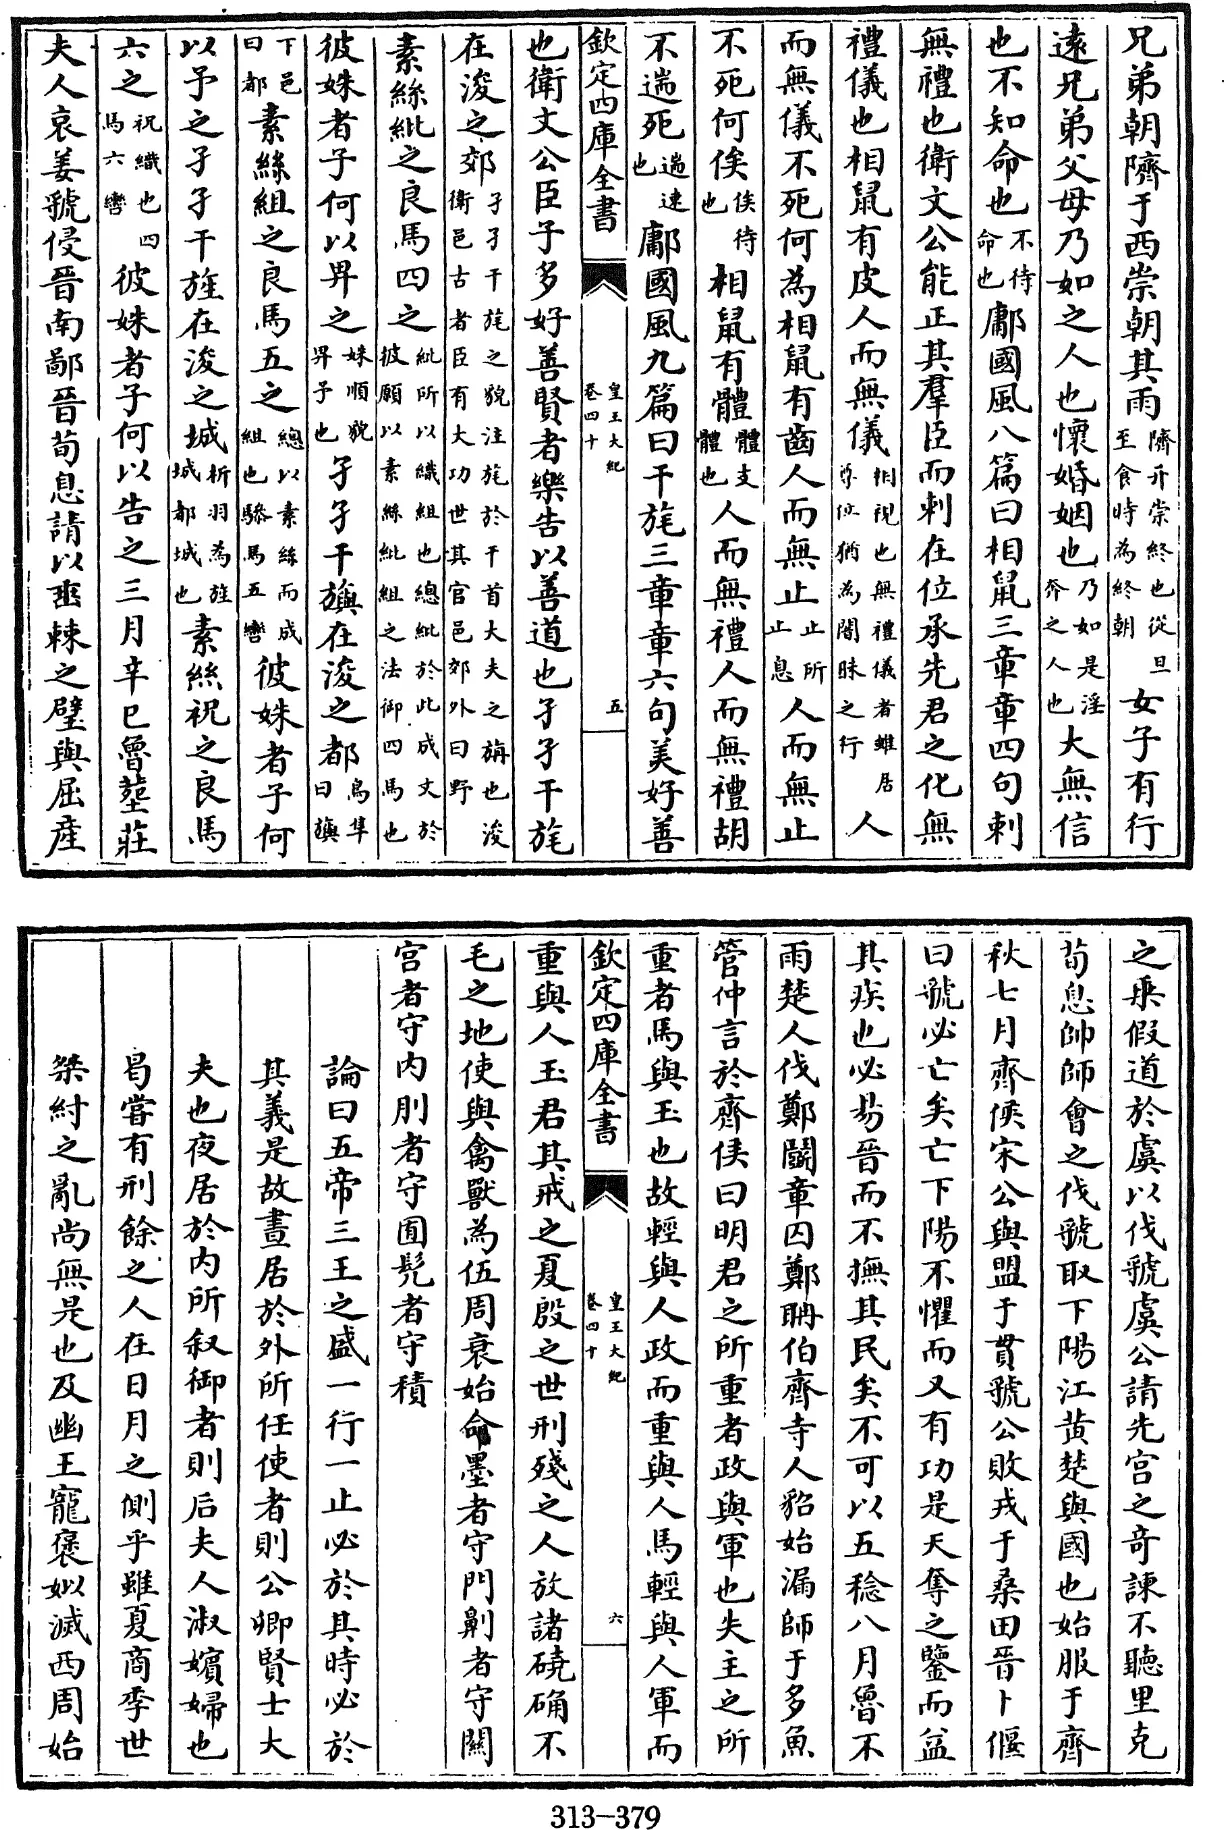 兄弟朝隮于西崇朝其雨隮升崇終也從旦至食時為終朝女子有行
遠兄弟父母乃如之人也懷婚姻也乃如是淫奔之人也大無信
也不知命也不待命也鄘國風八篇曰相鼠三章章四句刺
無禮也衛文公能正其羣臣而刺在位承先君之化無
禮儀也相鼠有皮人而無儀相視也無禮儀者雖居尊位猶為闇昧之行人
而無儀不死何為相鼠有齒人而無止止所止息人而無止
不死何俟俟待也相鼠有體體支體也人而無禮人而無禮胡
不遄死遄速也鄘國風九篇曰干旄三章章六句美好善
欽定四庫全書 皇王大紀卷四十 五
也衛文公臣子多好善賢者樂告以善道也孑孑干旄
在浚之郊孑孑干旄之貌注旄於干首大夫之旃也浚衛邑古者臣有大功世其官邑郊外曰野
素絲紕之良馬四之紕所以織組也總紕於此成文於彼願以素絲紕組之法御四馬也
彼姝者子何以畀之姝順貌畀予也孑孑干旟在浚之都鳥隼曰旟
下邑曰都素絲組之良馬五之總以素絲而成組也驂馬五轡彼姝者子何
以予之孑孑干旌在浚之城析羽為旌城都城也素絲祝之良馬
六之祝織也四馬六轡彼姝者子何以告之三月辛巳魯葬莊
夫人哀姜虢侵晉南鄙晉荀息請以垂棘之璧與屈產
之乘假道於虞以伐虢虞公請先宮之奇諫不聽里克
荀息帥師會之伐虢取下陽江黃楚與國也始服于齊
秋七月齊侯宋公與盟于貫虢公敗戎于桑田晉卜偃
曰虢必亡矣亡下陽不懼而又有功是天奪之鑒而益
其疾也必易晉而不撫其民矣不可以五稔八月魯不
雨楚人伐鄭鬭章囚鄭聃伯齊寺人貂始漏師于多魚
管仲言於齊侯曰明君之所重者政與軍也失主之所
重者馬與玉也故輕與人政而重與人馬輕與人軍而
欽定四庫全書 皇王大紀卷四十 六
重與人玉君其戒之夏殷之世刑殘之人放諸磽确不
毛之地使與禽獸為伍周衰始命墨者守門劓者守關
宮者守內刖者守囿髡者守積
論曰五帝三王之盛一行一止必於其時必於
其義是故晝居於外所任使者則公卿賢士大
夫也夜居於內所叙御者則后夫人淑嬪婦也
曷嘗有刑餘之人在日月之側乎雖夏商季世
桀紂之亂尚無是也及幽王寵褒姒滅西周始
313-379